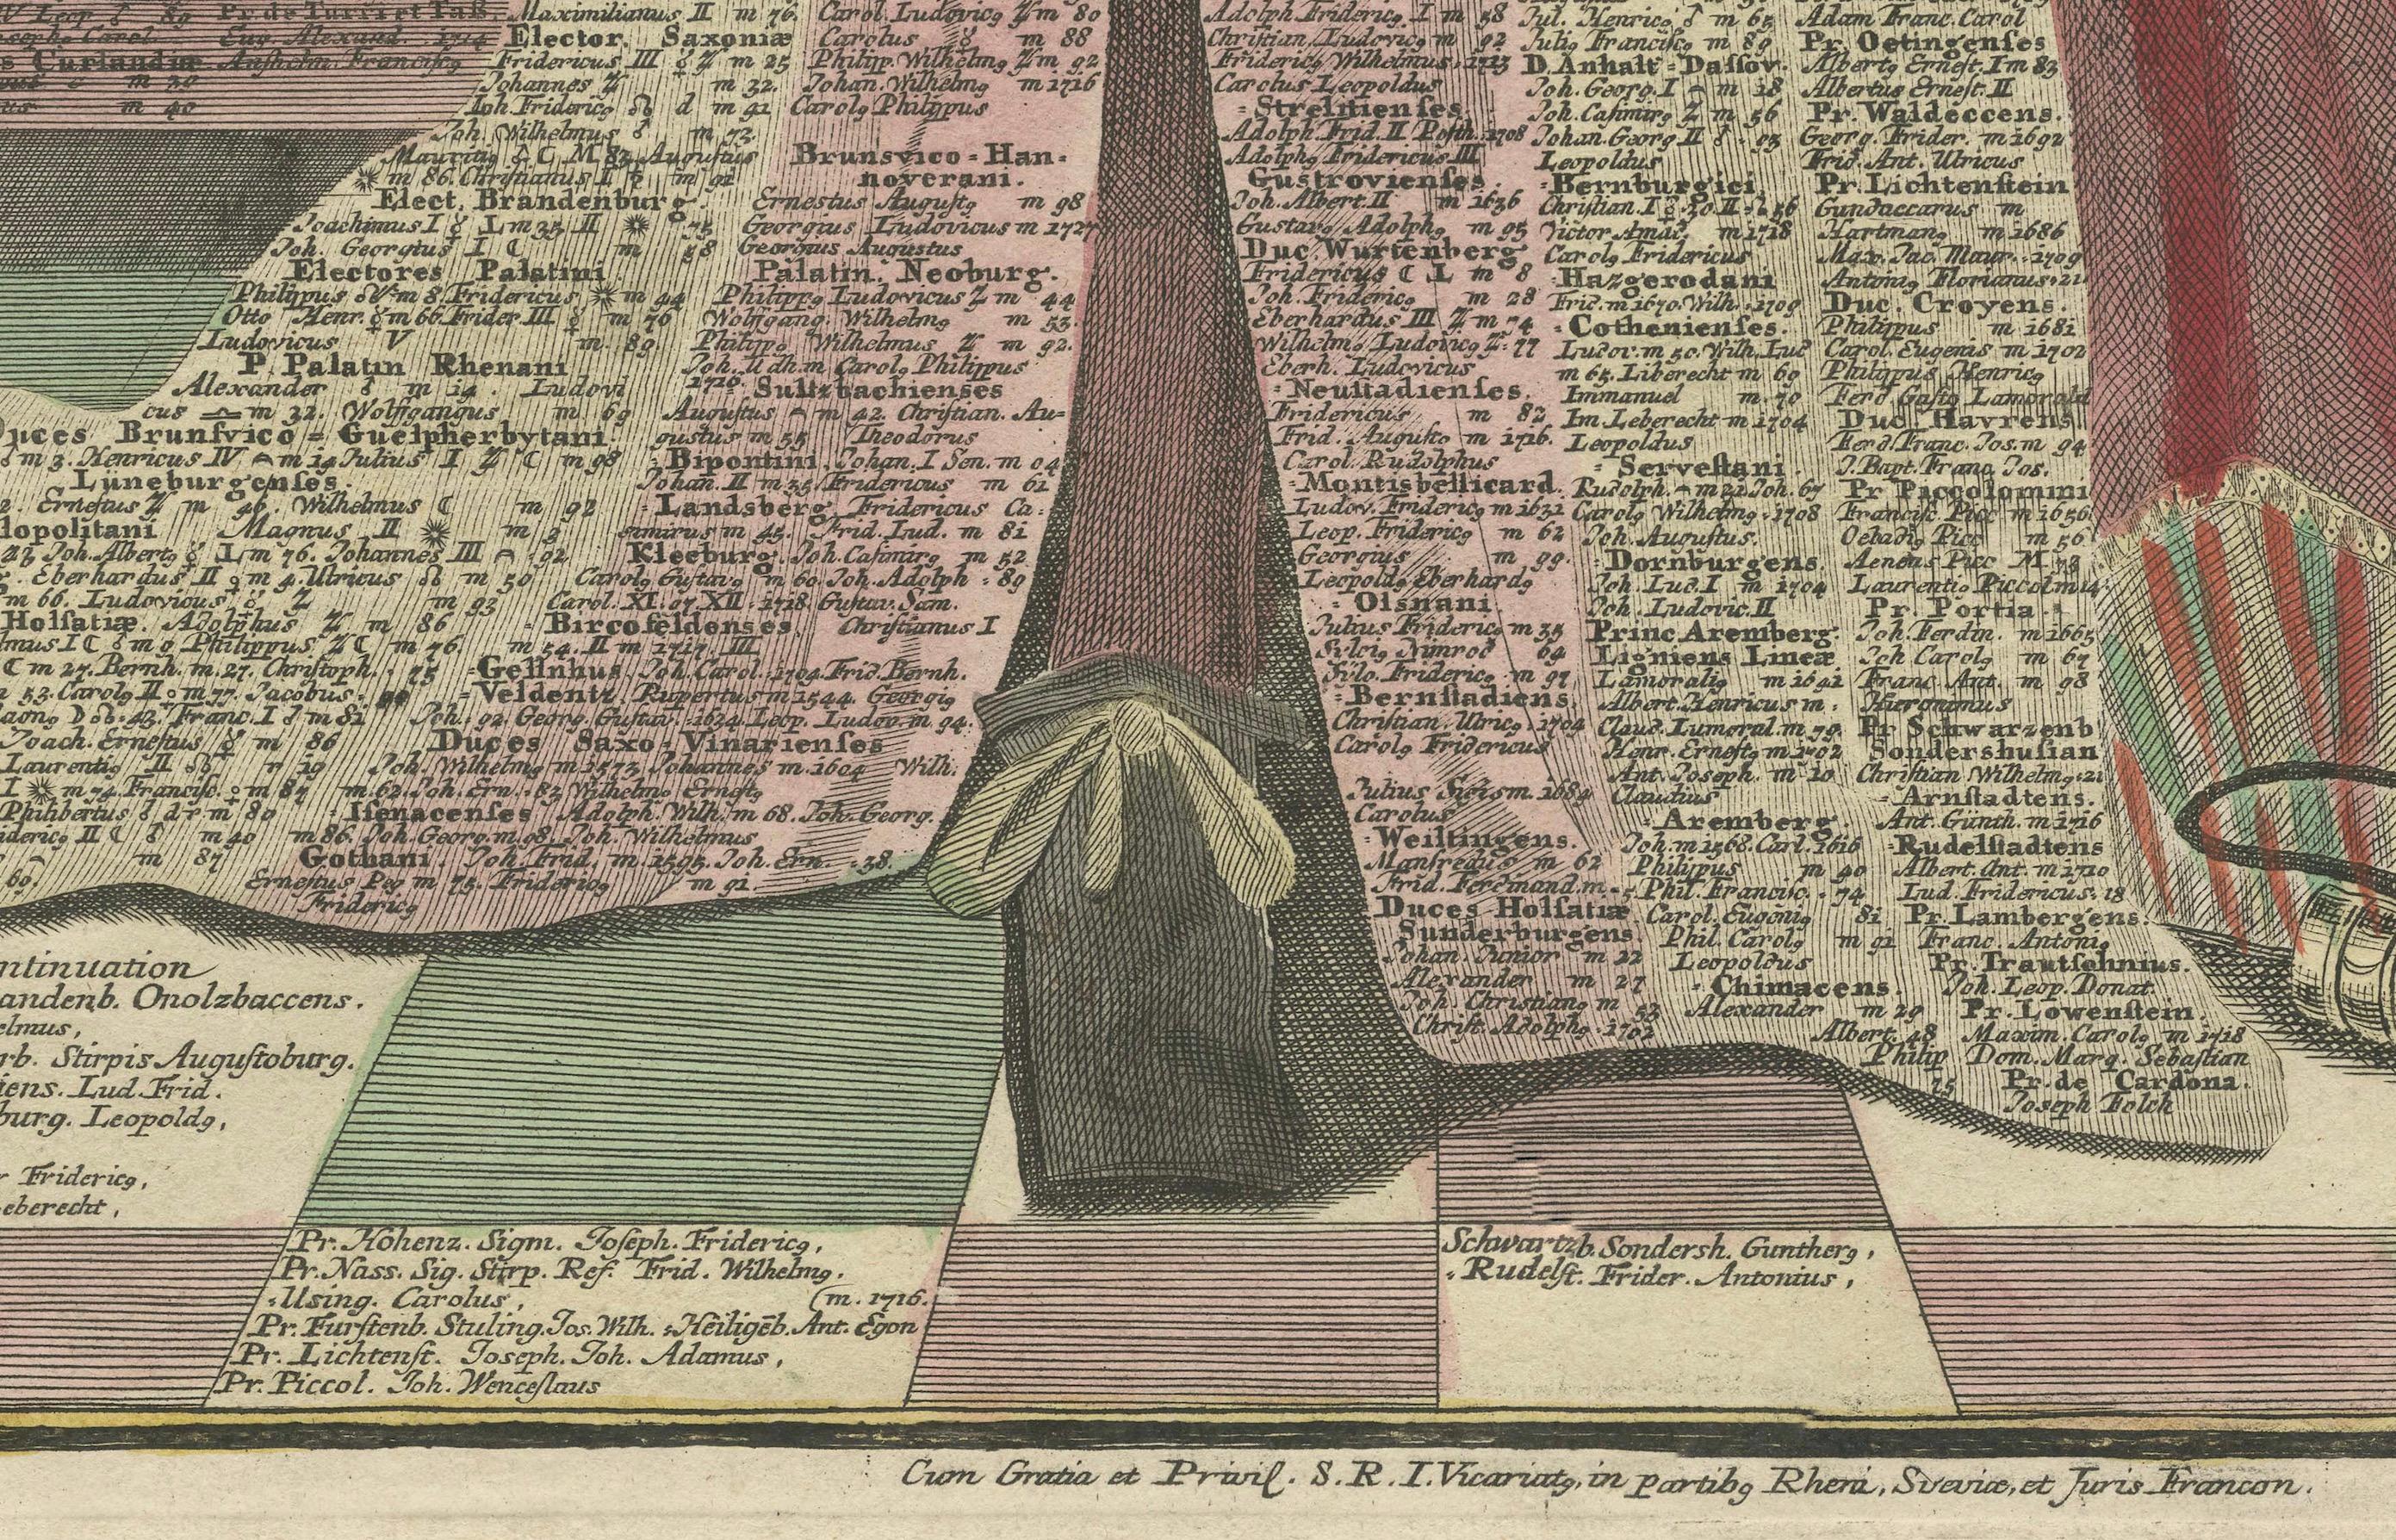 Maximilianus II m 76.
Elector. Saxoniæ
Fridericus III ☿ ♃ m 25
Johannes ♃ m 32.
Joh. Frideric9 ☊ d m 91
Joh. Wilhelmus ♂ m 73.
Mauriti9 ♂ ☾ M 83 Augustus
m 86. Christianus I m 91
Elect. Brandenburg.
Joachimus I ☿ L m 35 II 75
Joh. Georgius I ☾ m 58
Electores Palatini
Philippus m 8. Fridericus m 44
Otto Henr. ☿ m 66. Frider. III ☿ m 70
Ludovicus V m. 89
P. Palatin Rhenani
Alexander ♂ m 14. Ludovi
cus ♎ m 32. Wolfgangus m 69
Duces Brunſvico = Guelpherbytani
m 3. Henricus IV m 14 Julius I ♃ ☾ m 98
Luneburgenſes.
Erneſtus ♃ m 46. Wilhelmus ☾ m 92
lopolitani Magnus II m 3
Joh. Albert9 ☿ L m 76. Johannes III 92
Eberhardus II ♀ m 4. Ulricus ☊ m 50
m 66. Ludovicus ☿ ♃ m 93
Holſatiæ. Adolphus ♃ m 86
lmus I ☾ ♂ m 9 Philippus ♃ ☾ m 76.
☾ m 27. Bernh. m. 27. Chriſtoph. 75
53. Carol9 II m 77. Jacobus
Franc. I ♂ m 81
Joach. Erneſtus ☿ m 86
Laurenti9 II ☊ 19
I m 74. Franciſc. ♀ m 87
Philibertus m 80
ideric9 II ☾ ♂ m 40
m 87
69.
Carol. Ludovic9 ♃ m 80
Carolus ☿ m 88
Philipp. Wilhelm9 ♃ m 92
Johan. Wilhelm9 m 1716
Carol9 Philippus
Brunsvico = Han =
noverani.
Erneſtus Auguſt9 m 98
Georgius Ludovicus m 1727
Georgius Auguſtus
Palatin. Neoburg.
Philipp9 Ludovicus ♃ m 44
Wolfgang. Wilhelm9 m 53.
Philipp9 Wilhelmus ♃ m 92.
Joh. Wilh. m Carol9 Philippus
1716. Sultzbachienses
Auguſtus m 42. Christian. Au=
guſtus m 55 Theodorus
= Bipontini. Johan. I Sen. m 04
Johan. II m 35 Fridericus m 61
= Landsberg. Fridericus Ca=
simirus m 45. Frid. Lud. m 81
Kleeburg. Joh. Caſimir9 m 52
Carol9 Guſtav9 m 60. Joh. Adolph = 89
Carol. XI. 97 XII = 1718 Guſtav. Sam.
= Bircofeldenses. Chriſtianus I
m 54. II m 1717. III
= Gellnhus Joh. Carol. 1704 Frid. Bernh.
= Veldentz. Rupertus m 1544. Georgi9
Joh. 92. Georg. Guſtav. 1634. Leop. Ludov. m 94.
Duces Saxo = Vinarienſes
Joh. Wilhelm9 m 1573 Johannes m. 1604 Wilh.
m. 62. Joh. Ern. 83 Wilhelm9 Erneſt9
= Iſenacenſes Adolph. Wilh. m 68. Joh. Georg.
m 86. Joh. Georg. m 98. Joh. Wilhelmus
Gothani. Joh. Frid. m. 1595. Joh. Ern. = 38.
Erneſtus Peg m 75. Frideric9 m 91
Frideric9
Adolph. Frideric9 I m 58
Chriſtian Ludovic9 m 92
Frideric9 Wilhelmus. 1713
Carolus Leopoldus
= Strelitienſes
Adolph. Frid. II Poſth. 1708
Adolph9 Fridericus III
Guſtrovienſes.
Joh. Albert. II m 1636
Guſtav9 Adolph9 m 95
Duc. Wurtenberg
Fridericus ☾ L m 8
Joh. Frideric9 m 28
Eberhardus III ♃ m 74
Wilhelm9 Ludovic9 ♃ 77
Eberh. Ludovicus
= Neuſtadienſes.
Fridericus m 82
Frid. Auguſt9 m 1716.
Carol. Rudolphus
= Montisbellicard.
Ludov. Frideric9 m 1631
Leop. Frideric9 m 62
Georgius m 99
Leopold9 Eberhard9
= Olsnani.
Julius Frideric9 m 35
Silvi9 Nimrod 64
Sylv9 Frideric9 m 97
= Bernſtadiens.
Chriſtian. Ulric9 1704
Carol9 Fridericus
Julius Sigism. 1684
Carolus
= Weiltingens.
Manfredus m 62
Frid. Ferdinand. m
Duces Holſatiæ
Sunderburgens.
Johan. Junior m 22
Alexander m 27
Joh. Chriſtian9 m 53
Chriſt. Adolph9 1702
Jul. Henric9 ♂ m 65
Juli9 Franciſc9 m 89
D. Anhalt = Daſſov.
Joh. Georg. I m 18
Joh. Caſimir9 ♃ m 56
Johan. Georg II ♂ 93
Leopoldus
= Bernburgici.
Victor Amad. m 1718
Carol9 Fridericus
= Hazgerodani
Frid. m 1670. Wilh. 1709
= Cothenienſes.
Ludov. m 50. Wilh. Lud
m 65. Liberecht m 69
Immanuel m. 70
Im. Leberecht m 1704
Leopoldus
= Serveſtani.
Rudolph. m 21. Joh. 67
Carol9 Wilhelm9 1708
Joh. Auguſtus.
= Dornburgens
Joh. Lud. I m 1704
Joh. Ludovic. II
Princ. Aremberg.
Ligniens Lineæ
Lamorali9 m 1641
Albert. Henricus m.
Claud. Lamoral. m 79.
Henr. Erneſt9 m 1702
Ant. Joseph. m 10
Claudius
= Aremberg.
Joh. m 1568. Carl. 1616
Philippus m 40
Phil. Franciſc. 74
Carol. Eugeni9 81
Phil. Carol9 m 91
Leopoldus
= Chimacens.
Alexander m 29
Albert. 48
Philip
75
Adam Franc. Carol
Pr. Oetingenſes
Albert9 Erneſt. I m 83
Albertus Erneſt. II
Pr. Waldeccens.
Georg. Frider. m 1692
Frid. Ant. Ulricus
Pr. Lichtenſtein
Gundaccarus m
Hartman9 m 1686
Max. Jac. Maur. 1709
Antoni9 Florianus 21
Duc. Croyens.
Philippus m 1681
Carol. Eugenis m 1702
Philippus Henric9
Ferd. Gaſt9 Lamorald
Duc. Havrens.
Ferd. Franc. Jos. m 94
J. Bapt. Franc. Jos.
Pr Piccolomini
Franciſc. Picc. m 1656
Octavi9 Picc. m 56
Aeneas Picc M 73
Laurenti9 Piccol. m 14
Pr. Portia.
Joh. Ferdin. m 1665
Joh Carol9 m 67
Franc. Ant. m 98
Hieronimus
Pr Schwarzenb
Sondershuſian
Chriſtian Wilhelm9 21
= Arnſtadtens.
Ant. Gunth. m 1716
= Rudelſtadtens
Albert. Ant. m 1710
Lud. Fridericus. 18
Pr. Lambergens.
Franc. Antoni9
Pr. Trautſohnius.
Joh. Leop. Donat.
Pr. Lowenſtein.
Maxim. Carol9 m 1718
Dom. Marq. Sebaſtian
Pr. de Cardona.
Joseph Folch
ntinuation
andenb. Onolzbaccens.
elmus,
rb. Stirpis Auguſtoburg.
iens. Lud. Frid.
burg. Leopold9,
r Frideric9,
eberecht,
Pr. Hohenz. Sigm. Joſeph. Frideric9,
Pr. Nass. Sig. Stirp. Ref. Frid. Wilhelm9.
= Using. Carolus, (m. 1716.
Pr. Furſtenb. Stuling. Jos. Wilh. = Heiligēb. Ant. Egon
Pr. Lichtenſt. Joseph. Joh. Adamus,
Pr. Piccol. Joh. Wenceſlaus
Schwartzb. Sondersh. Gunther9,
= Rudelſt. Frider. Antonius,
Cum Gratia et Privil. S. R. I. Vicariat9, in partib9 Rheni, Sveviæ, et Juris Francon.